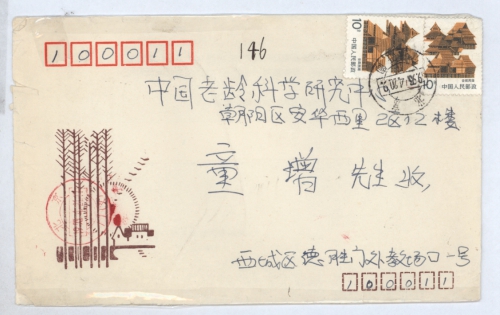 100011
146
中国老龄科学研究中
朝阳区安华西里2区12楼
童增 先生 收
西城区德胜门外教场口一号
100011
10分
中国人民邮政
10分
中国人民邮政